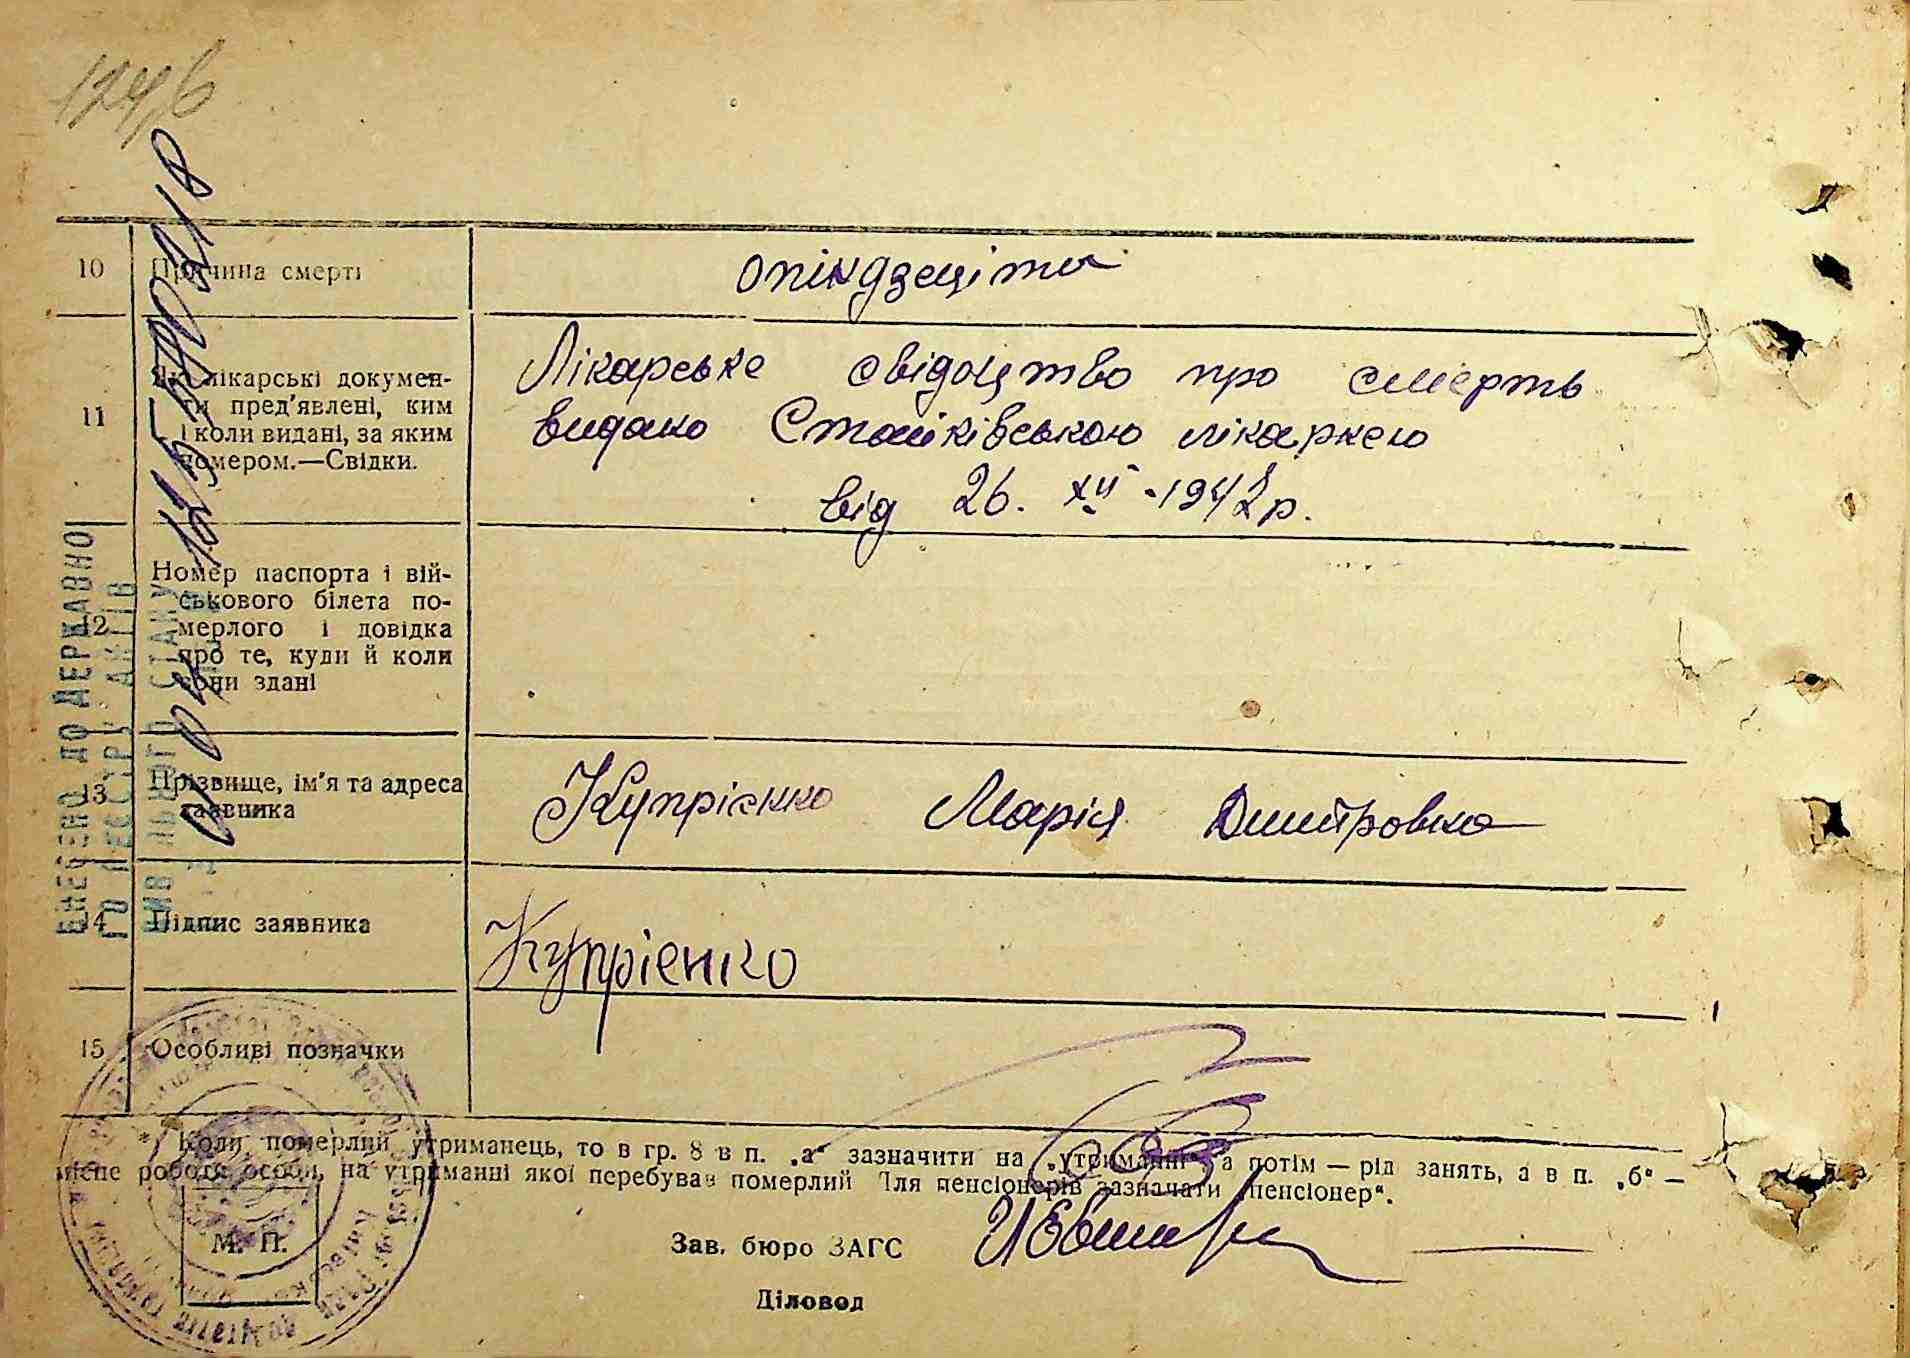 10 Причина смерті
опіндзеціти
11 Які лікарські докумен-
ти пред'явлені, ким
і коли видані, за яким
номером.—Свідки.
Лікарське свідоцтво про смерть
видано Стайківською лікаркею
від 26. XII. 1942р.
12 Номер паспорта і вій-
ськового білета по-
мерлого і довідка
про те, куди й коли
вони здані
13 Прізвище, ім'я та адреса
заявника
Купрієнко Марія Дмитровна
14 Підпис заявника
Купрієнко
15 Особливі позначки
*) Коли померлий утриманець, то в гр. 8 в п. „а“ зазначити на „утриманні“ а потім — рід занять, а в п. „б“ —
місце роботи особи, на утриманні якої перебував померлий Для пенсіонерів зазначати „пенсіонер“.
М. П.
Зав. бюро ЗАГС
Діловод
ВНЕСЕНО ДО ДЕРЖАВНО
ГО РЕЄСТРУ АКТІВ
ЦИВІЛЬНОГО СТАНУ